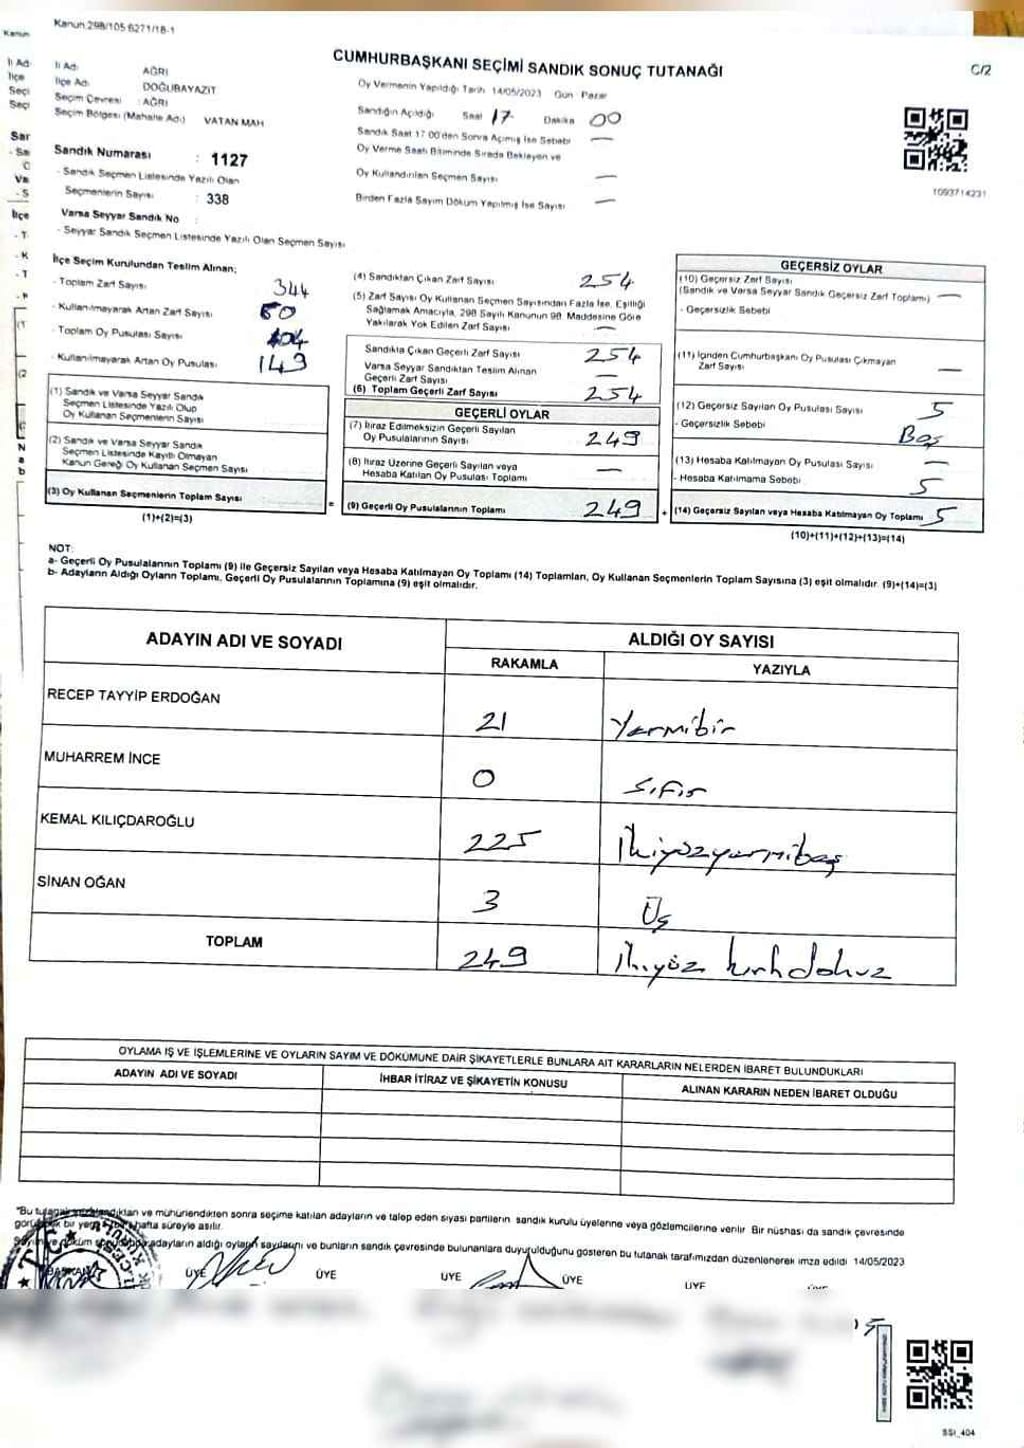 Kanun 298/105 6271/18-1
CUMHURBAŞKANI SEÇİMİ SANDIK SONUÇ TUTANAĞI
C/2
İl Adı AĞRI
İlçe Adı DOĞUBAYAZIT
Seçim Çevresi : AĞRI
Seçim Bölgesi (Mahalle Adı) VATAN MAH
Sandık Numarası : 1127
- Sandık Seçmen Listesinde Yazılı Olan
Seçmenlerin Sayısı : 338
Varsa Seyyar Sandık No :
- Seyyar Sandık Seçmen Listesinde Yazılı Olan Seçmen Sayısı
Oy Vermenin Yapıldığı Tarih 14/05/2023 Gün Pazar
Sandığın Açıldığı Saat 17 Dakika 00
Sandık Saat 17 00'den Sonra Açılmış İse Sebebi —
Oy Verme Saati Bitiminde Sırada Bekleyen ve
Oy Kullandırılan Seçmen Sayısı —
Birden Fazla Sayım Döküm Yapılmış İse Sayısı —
1093714231
İlçe Seçim Kurulundan Teslim Alınan;
- Toplam Zarf Sayısı 344
- Kullanılmayarak Artan Zarf Sayısı
- Toplam Oy Pusulası Sayısı
- Kullanılmayarak Artan Oy Pusulası 149
(1) Sandık ve Varsa Seyyar Sandık
Seçmen Listesinde Yazılı Olup
Oy Kullanan Seçmenlerin Sayısı
(2) Sandık ve Varsa Seyyar Sandık
Seçmen Listesinde Kayıtlı Olmayan
Kanun Gereği Oy Kullanan Seçmen Sayısı
(3) Oy Kullanan Seçmenlerin Toplam Sayısı
(1)+(2)=(3)
(4) Sandıktan Çıkan Zarf Sayısı 254
(5) Zarf Sayısı Oy Kullanan Seçmen Sayısından Fazla İse, Eşitliği
Sağlamak Amacıyla, 298 Sayılı Kanunun 98. Maddesine Göre
Yakılarak Yok Edilen Zarf Sayısı —
Sandıkta Çıkan Geçerli Zarf Sayısı 254
Varsa Seyyar Sandıktan Teslim Alınan
Geçerli Zarf Sayısı —
(6) Toplam Geçerli Zarf Sayısı 254
GEÇERLİ OYLAR
(7) İtiraz Edilmeksizin Geçerli Sayılan
Oy Pusulalarının Sayısı 249
(8) İtiraz Üzerine Geçerli Sayılan veya
Hesaba Katılan Oy Pusulası Toplamı —
= (9) Geçerli Oy Pusulalarının Toplamı 249 +
GEÇERSİZ OYLAR
(10) Geçersiz Zarf Sayısı
(Sandık ve Varsa Seyyar Sandık Geçersiz Zarf Toplamı) —
- Geçersizlik Sebebi
(11) İçinden Cumhurbaşkanı Oy Pusulası Çıkmayan
Zarf Sayısı —
(12) Geçersiz Sayılan Oy Pusulası Sayısı 5
- Geçersizlik Sebebi Boş
(13) Hesaba Katılmayan Oy Pusulası Sayısı —
- Hesaba Katılmama Sebebi 5
(14) Geçersiz Sayılan veya Hesaba Katılmayan Oy Toplamı 5
(10)+(11)+(12)+(13)=(14)
NOT:
a- Geçerli Oy Pusulalarının Toplamı (9) ile Geçersiz Sayılan veya Hesaba Katılmayan Oy Toplamı (14) Toplamları, Oy Kullanan Seçmenlerin Toplam Sayısına (3) eşit olmalıdır. (9)+(14)=(3)
b- Adayların Aldığı Oyların Toplamı, Geçerli Oy Pusulalarının Toplamına (9) eşit olmalıdır.
ADAYIN ADI VE SOYADI ALDIĞI OY SAYISI
RAKAMLA YAZIYLA
RECEP TAYYİP ERDOĞAN 21 Yirmibir
MUHARREM İNCE 0 Sıfır
KEMAL KILIÇDAROĞLU 225 İkiyüzyirmibeş
SİNAN OĞAN 3 Üç
TOPLAM 249 İkiyüz kırkdokuz
OYLAMA İŞ VE İŞLEMLERİNE VE OYLARIN SAYIM VE DÖKÜMÜNE DAİR ŞİKAYETLERLE BUNLARA AİT KARARLARIN NELERDEN İBARET BULUNDUKLARI
ADAYIN ADI VE SOYADI İHBAR İTİRAZ VE ŞİKAYETİN KONUSU ALINAN KARARIN NEDEN İBARET OLDUĞU
"Bu tutanak ve mühürlendikten sonra seçime katılan adayların ve talep eden siyasi partilerin sandık kurulu üyelerine veya gözlemcilerine verilir Bir nüshası da sandık çevresinde
bir hafta süreyle asılır.
adayların aldığı oyların sayılarını ve bunların sandık çevresinde bulunanlara duyurulduğunu gösteren bu tutanak tarafımızdan düzenlenerek imza edildi 14/05/2023
BAŞKAN ÜYE ÜYE ÜYE ÜYE ÜYE
SSİ_404